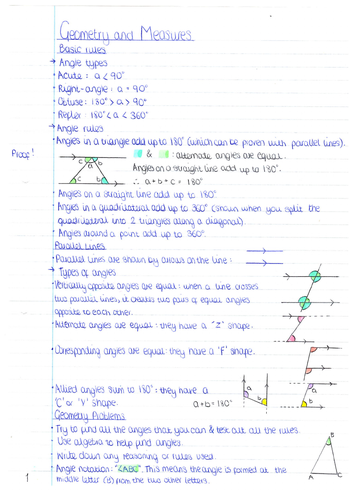 Geometry and Measures
Basic rules
→ Angle types
• Acute : a < 90°
• Right-angle : a = 90°
• Obtuse : 180° > a > 90°
• Reflex : 180° < a < 360°
→ Angle rules
• Angles in a triangle add up to 180° (which can be proven with parallel lines).
Proof!
& : alternate angles are equal.
Angles on a straight line add up to 180°.
∴ a+b+c = 180°
c a b
c b
• Angles on a straight line add up to 180°.
• Angles in a quadrilateral add up to 360° (shown when you split the
quadrilateral into 2 triangles along a diagonal).
• Angles around a point add up to 360°.
Parallel Lines
• Parallel lines are shown by arrows on the line :
→ Types of angles
• Vertically opposite angles are equal : when a line crosses
two parallel lines, it creates two pairs of equal angles
opposite to each other.
• Alternate angles are equal : they have a "Z" shape.
• Corresponding angles are equal : they have a 'F' shape.
• Allied angles sum to 180° : they have a
'C' or 'U' shape.
a+b = 180°
a
b
a
b
Geometry Problems
• Try to find all the angles that you can & test out all the rules.
• Use algebra to help find angles.
• Write down any reasoning or rules used.
• Angle notation : "<ABC". This means the angle is formed at the
middle letter (B) from the two other letters.
B
A C
1